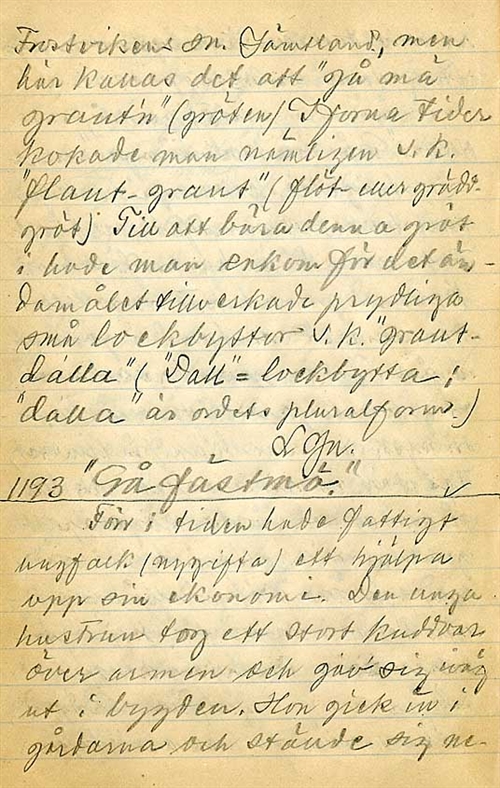 Frostvikens sn. Jämtland, men
här kallas det att "gå må
graut'n" (gröten) I forna tider
kokade man nämligen s. k.
"flaut-graut" (flöt- eller grädd-
gröt) Till att bära denna gröt
i hade man enkom för det än-
damålet tillverkade prydliga
små lockbyttor s. k. "graut-
dålla" ("Dall" = lockbytta;
"dalla" är ordets pluralform.)
1193 "Gå fästmö."
Förr i tiden hade fattigt
ungfolk (nygifta) ett hjälpa
upp sin ekonomi. Den unga
hustrun tog ett stort kuddvar
över armen och gav sig iväg
ut i bygden. Hon gick in i
gårdarna och stände sig ne-